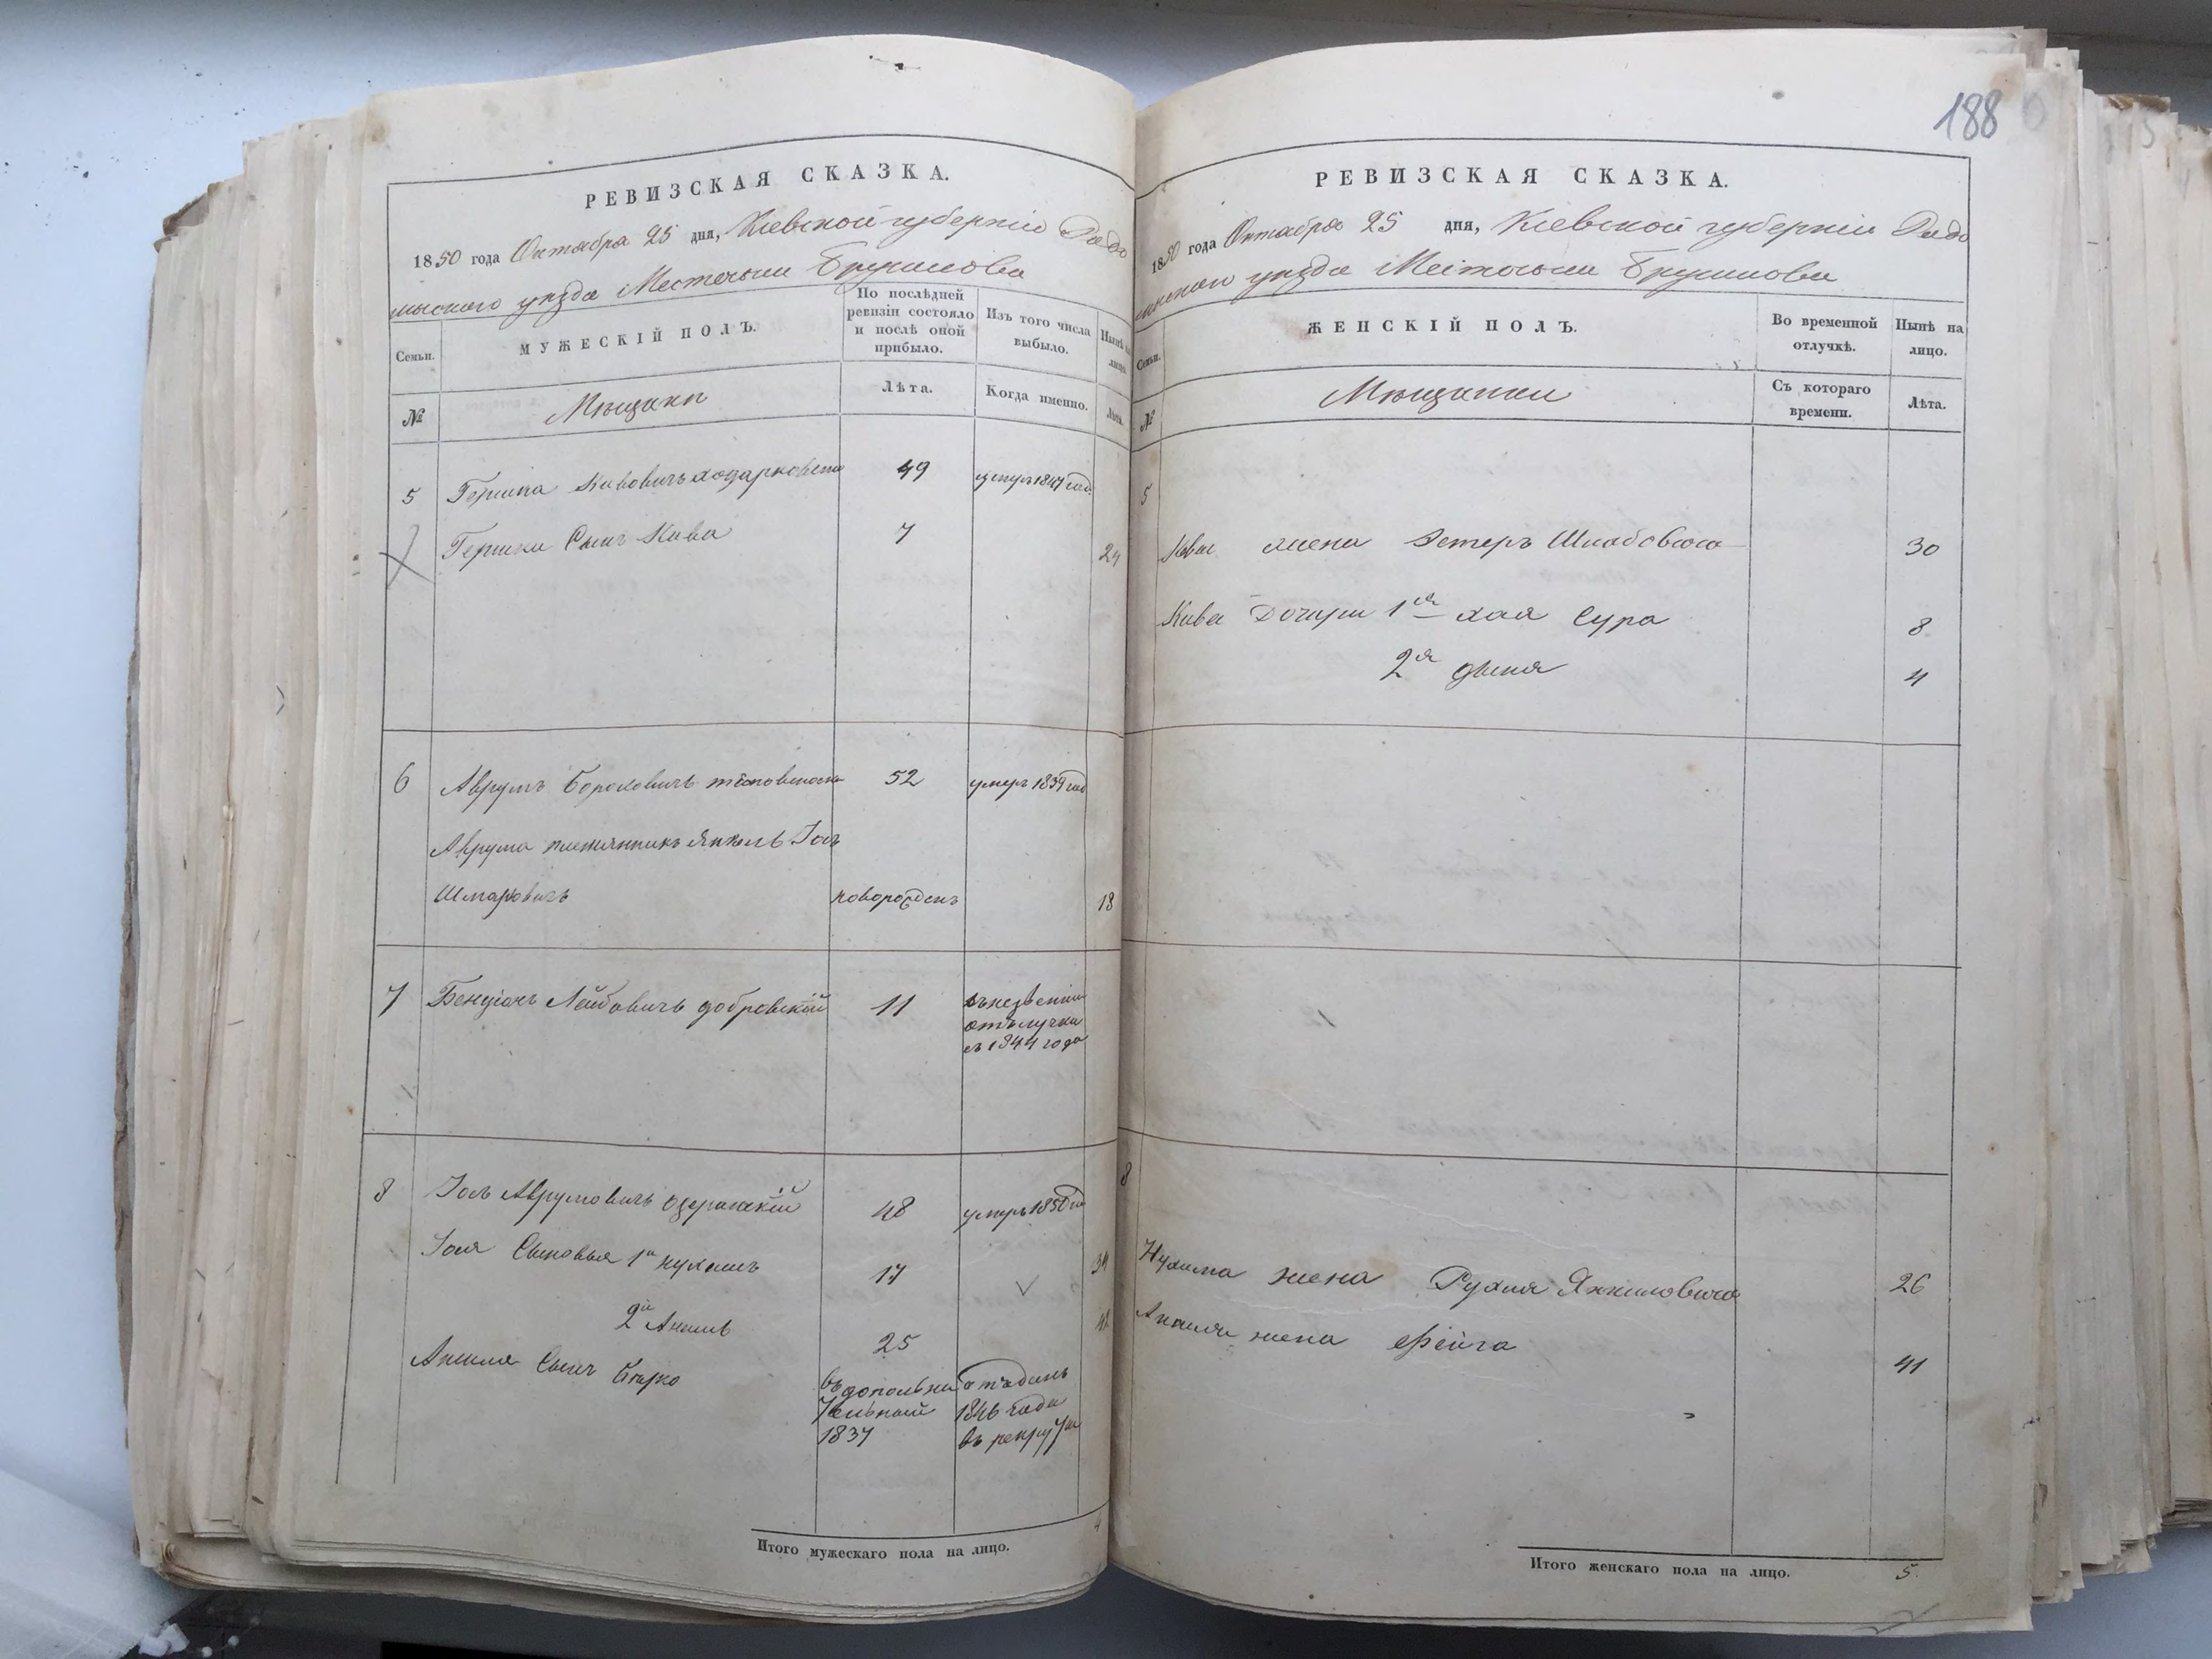 188
РЕВИЗСКАЯ СКАЗКА.
1850 года Октября 25 дня, Кіевской губерніи Радо
мысльского уѣзда Местечьки Брусилова
Семьи.
МУЖЕСКІЙ ПОЛЪ.
По послѣдней ревизіи состояло и послѣ оной прибыло.
Изъ того числа выбыло.
Нынѣ на лицо.
№
Мѣщани
Лѣта.
Когда именно.
Лѣта.
5 Гершка Кивовичъ 49 умеръ 1847 год.
Гершки Сынъ Кива 7 24
6 Аврумъ Бороховичъ 52 умеръ 1839 год
Аврума племянникъ Янкель Іось
Шмаровичъ новорожденъ 13
7 Бенціонъ Лейбовичъ добровскій 11 въ
отълучки
съ 1844 года
8 Іось Аврумовичъ 48 умеръ 1850 год
Іося Сыновья 1й нухимъ 17 34
2й Аншель 25 42
Аншеля Сынъ Берко въ дополни отъданъ
тельной 1846 года
1837 въ рекруты
4
Итого мужескаго пола на лицо.
РЕВИЗСКАЯ СКАЗКА.
1850 года Октября 25 дня, Кіевской губерніи Радо
мысльского уѣзда Местечьки Брусилова
Семьи.
ЖЕНСКІЙ ПОЛЪ.
Во временной отлучкѣ.
Нынѣ на лицо.
№
Мѣщанки
Съ котораго времени.
Лѣта.
5
Кивы жена Эстеръ 30
Кивы Дочери 1я хая Сура 8
2я 4
8
Нухима жена Рухля Янкиловна 26
Аншеля жена Фейга 41
Итого женскаго пола на лицо. 5